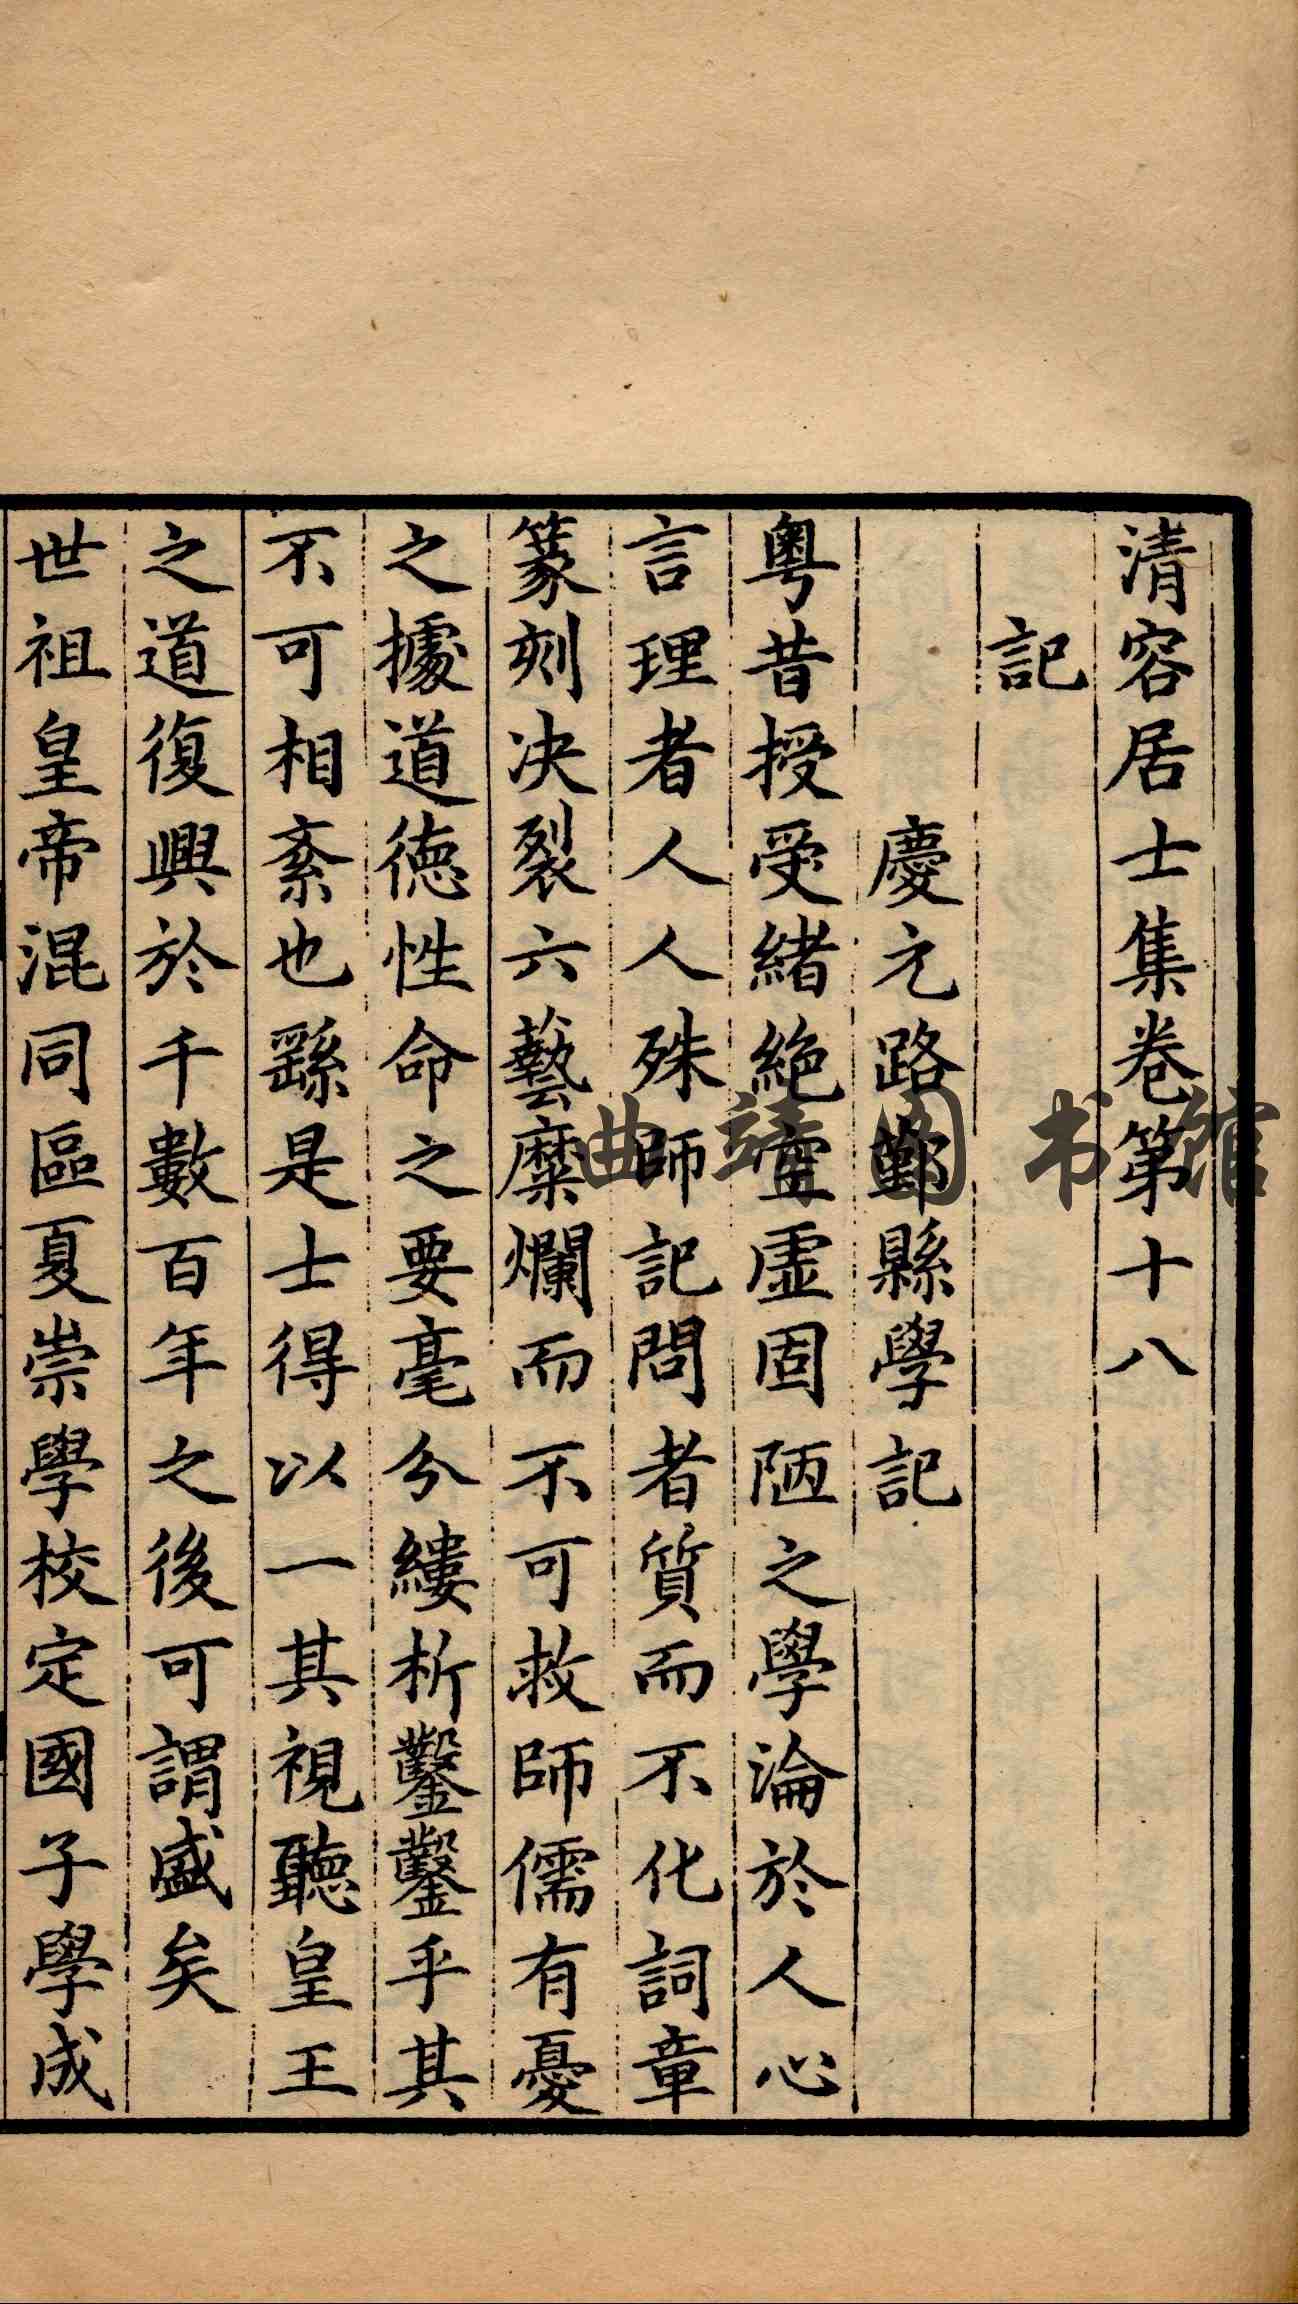 清容居士集卷第十八
記
慶元路鄞縣學記
粵昔授受緒絕空虛固陋之學淪於人心
言理者人人殊師記問者質而不化詞章
篆刻決裂六藝糜爛而不可救師儒有憂
之據道德性命之要毫分縷析鑿鑿乎其
不可相紊也繇是士得以一其視聽皇王
之道復興於千數百年之後可謂盛矣
世祖皇帝混同區夏崇學校定國子學成
曲靖图书馆